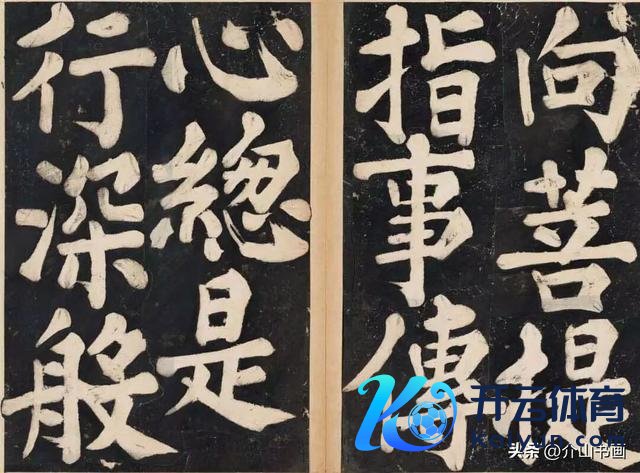 向菩提
指事傳
心緫是
行深般
开云体育
Kaiyun.com
头条 @介山书画